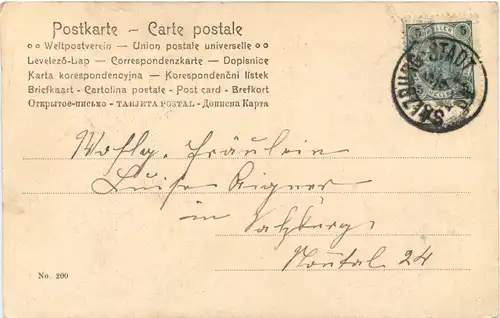 Postkarte – Carte postale
Weltpostverein — Union postale universelle
Levelező-Lap — Correspondenzkarte — Dopisnice
Karta korespondencyjna — Korespondenční lístek
Briefkaart - Cartolina postale - Post card - Brefkort
Открытое-письмо - TARJETA POSTAL - Дописна Карта
5 HELLER 5
SALZBURG-STADT
Wohlg. Fräulein
Luise Aigner
in Salzburg
24
No. 200